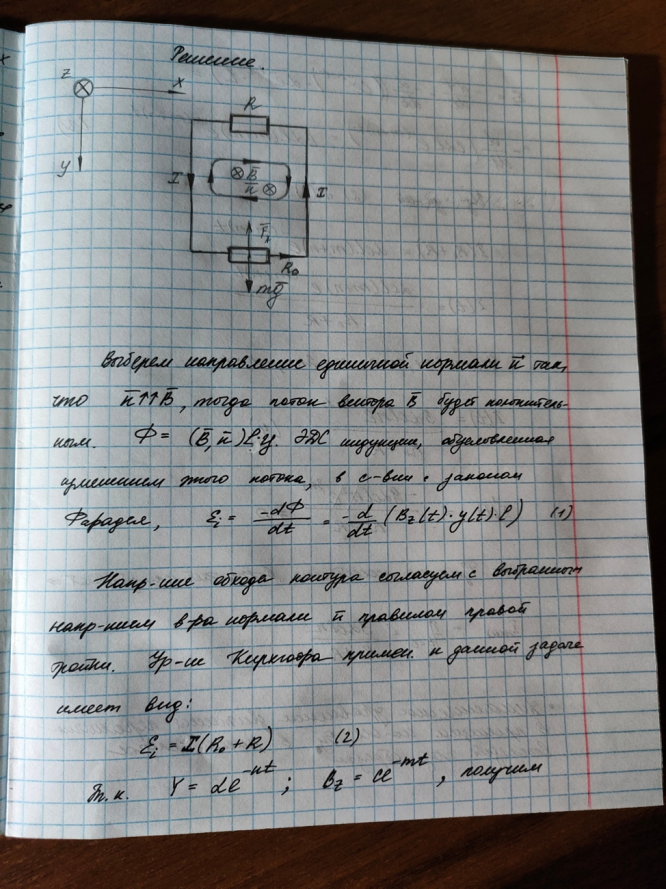 Решение.
Z
X
Y
R
I
B̄
n̄
I
F̄
R₀
mḡ
Выберем направление единичной нормали n̄ так,
что n̄↑↑B̄, тогда поток вектора B̄ будет положитель-
ным. Ф = (B̄, n̄)ℓ·y. ЭДС индукции, обусловленная
изменением этого потока, в с-вии с законом
Фарадея, Ɛi = -dФ/dt = -d/dt (Bz(t)·y(t)·ℓ) (1)
Напр-ние обхода контура согласуем с выбранным
напр-нием в-ра нормали n̄ правилом правой
тройки. Ур-ие Кирхгофа примен. к данной задаче
имеет вид:
Ɛi = I(R₀+R) (2)
Т.к. Y = de^-nt ; Bz = ce^-mt, получим